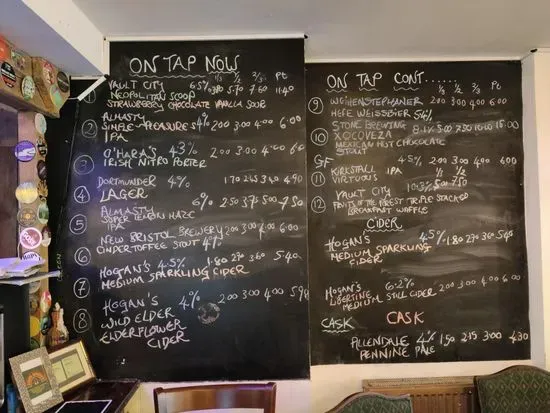 ON TAP NOW
1/3 1/2 2/3 Pt
1 VAULT CITY 6.5% 3.80 5.70 7.60 11.40
NEOPOLITAN SCOOP
STRAWBERRY CHOCOLATE VANILLA SOUR
2 ALMASTY
SIMPLE PLEASURES 4% 2.00 3.00 4.00 6.00
IPA
3 O'HARA'S 4.3% 2.00 3.00 4.00 6.00
IRISH NITRO PORTER
4 DORTMUNDER 4% 1.70 2.45 3.40 4.90
LAGER
5 ALMASTY 6% 2.50 3.75 5.00 7.50
SUPER LEMON HAZE
IPA
6 NEW BRISTOL BREWERY 2.00 3.00 4.00 6.00
CINDER TOFFEE STOUT 4%
7 HOGAN'S 4.5% 1.80 2.70 3.60 5.40
MEDIUM SPARKLING CIDER
8 HOGAN'S 4% 2.00 3.00 4.00 5.90
WILD ELDER
ELDERFLOWER
CIDER
ON TAP CONT......
9 WEIHENSTEPHANER 2.00 3.00 4.00 6.00
HEFE WEISSBIER 5.4%
10 STONE BREWING 5.00 7.50 10.00 15.00
XOCOVEZA
MEXICAN HOT CHOCOLATE
STOUT
GF 4.5% 2.00 3.00 4.00 6.00
11 KIRKSTALL IPA
VIRTUOUS
1/3 1/2
12 VAULT CITY 10.3% 5.00 7.50
FRUITS OF THE FOREST TRIPLE STACKED
BREAKFAST WAFFLE
CIDER
HOGAN'S 4.5% 1.80 2.70 3.60 5.40
MEDIUM SPARKLING
CIDER
HOGAN'S 6.2%
LIBERTINE 2.00 3.00 4.00 6.00
MEDIUM STILL CIDER
CASK CASK
ALLENDALE 4% 1.50 2.15 3.00 4.30
PENNINE PALE